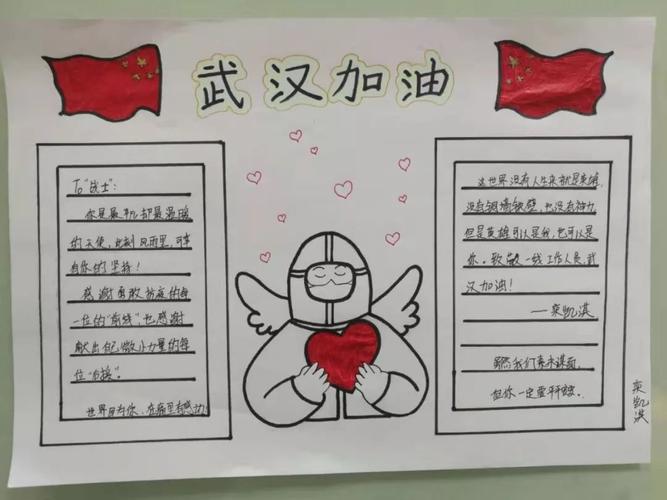 武汉加油
To"战士":
你是最平凡却最温暖
的天使,此刻风雨里,可幸
有你的坚持!
感谢勇敢抗疫的每
一位的"前线",也感谢
献出自己微小力量的每
位"后援"。
世界因有你,
这世界没有人生来就是英雄,
没有铜墙铁壁,也没有神力
但是英雄可以是我,也可以是
你。致敬一线工作人员,武
汉加油!
——栾凯淇
虽然我们素未谋面,
但你一定要平安
栾凯淇